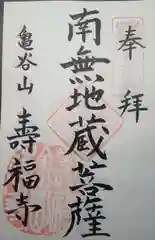 奉拝
南無地蔵菩薩
亀谷山
壽福寺